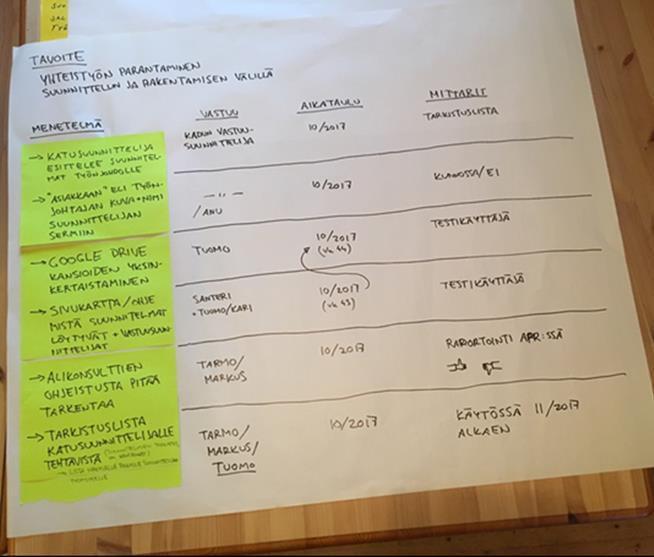 TAVOITE
YHTEISTYÖN PARANTAMINEN
SUUNNITTELUN JA RAKENTAMISEN VÄLILLÄ
MENETELMÄ
VASTUU
AIKATAULU
MITTARIT
→ KATUSUUNNITTELIJA
ESITTELEE SUUNNITEL-
MAT TYÖNJOHDOLLE
KADUN VASTUU-
SUUNNITTELIJA
10/2017
TARKISTUSLISTA
→ "ASIAKKAAN" ELI TYÖN-
JOHTAJAN KUVA + NIMI
SUUNNITTELIJAN
SERMIIN
— " —
/ANU
10/2017
KUNNOSSA/EI
→ GOOGLE DRIVE
KANSIOIDEN YKSIN-
KERTAISTAMINEN
TUOMO
10/2017
(vk 44)
TESTIKÄYTTÄJÄ
→ SIVUKARTTA/OHJE
MISTÄ SUUNNITELMAT
LÖYTYVÄT + VASTUUSUUN-
NITTELIJAT
SANTERI
+ TUOMO/KARI
10/2017
(vk 43)
TESTIKÄYTTÄJÄ
→ ALIKONSULTTIEN
OHJEISTUSTA PITÄÄ
TARKENTAA
TARMO/
MARKUS
10/2017
RAPORTOINTI APR:SSÄ
→ TARKISTUSLISTA
KATUSUUNNITTELIJALLE
TEHTÄVISTÄ
TARMO/
MARKUS/
TUOMO
10/2017
KÄYTÖSSÄ 11/2017
ALKAEN